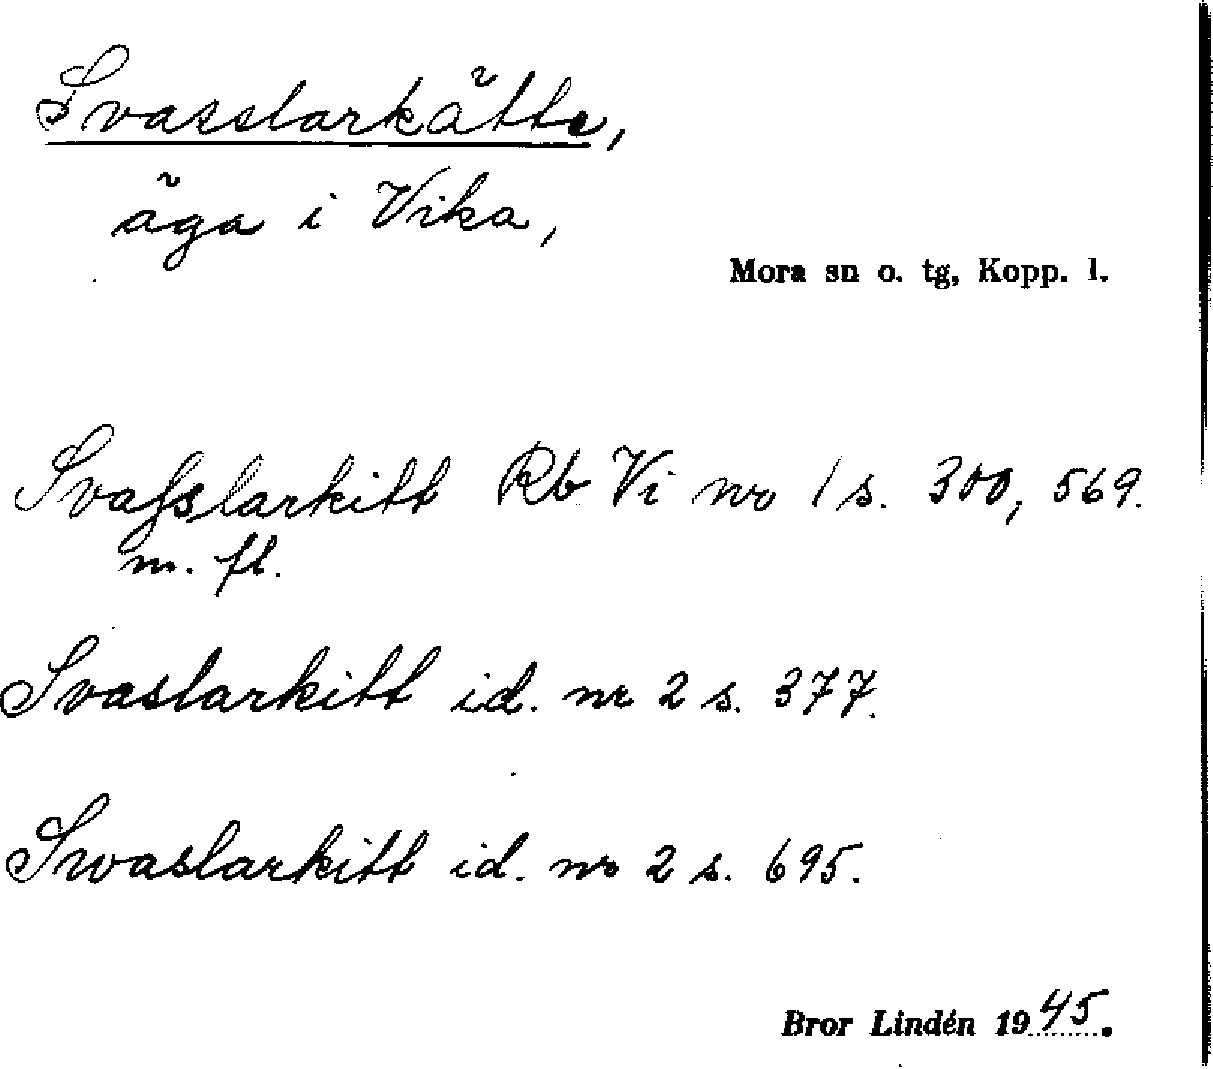 Svasslarkätte,
äga i Vika,
Mora sn o. tg, Kopp. l.
Svasslarkitt Rb Vi nr 1 s. 300, 569.
m. fl.
Svaslarkitt id. nr 2 s. 377.
Swaslarkitt id. nr 2 s. 695.
Bror Lindén 1945.